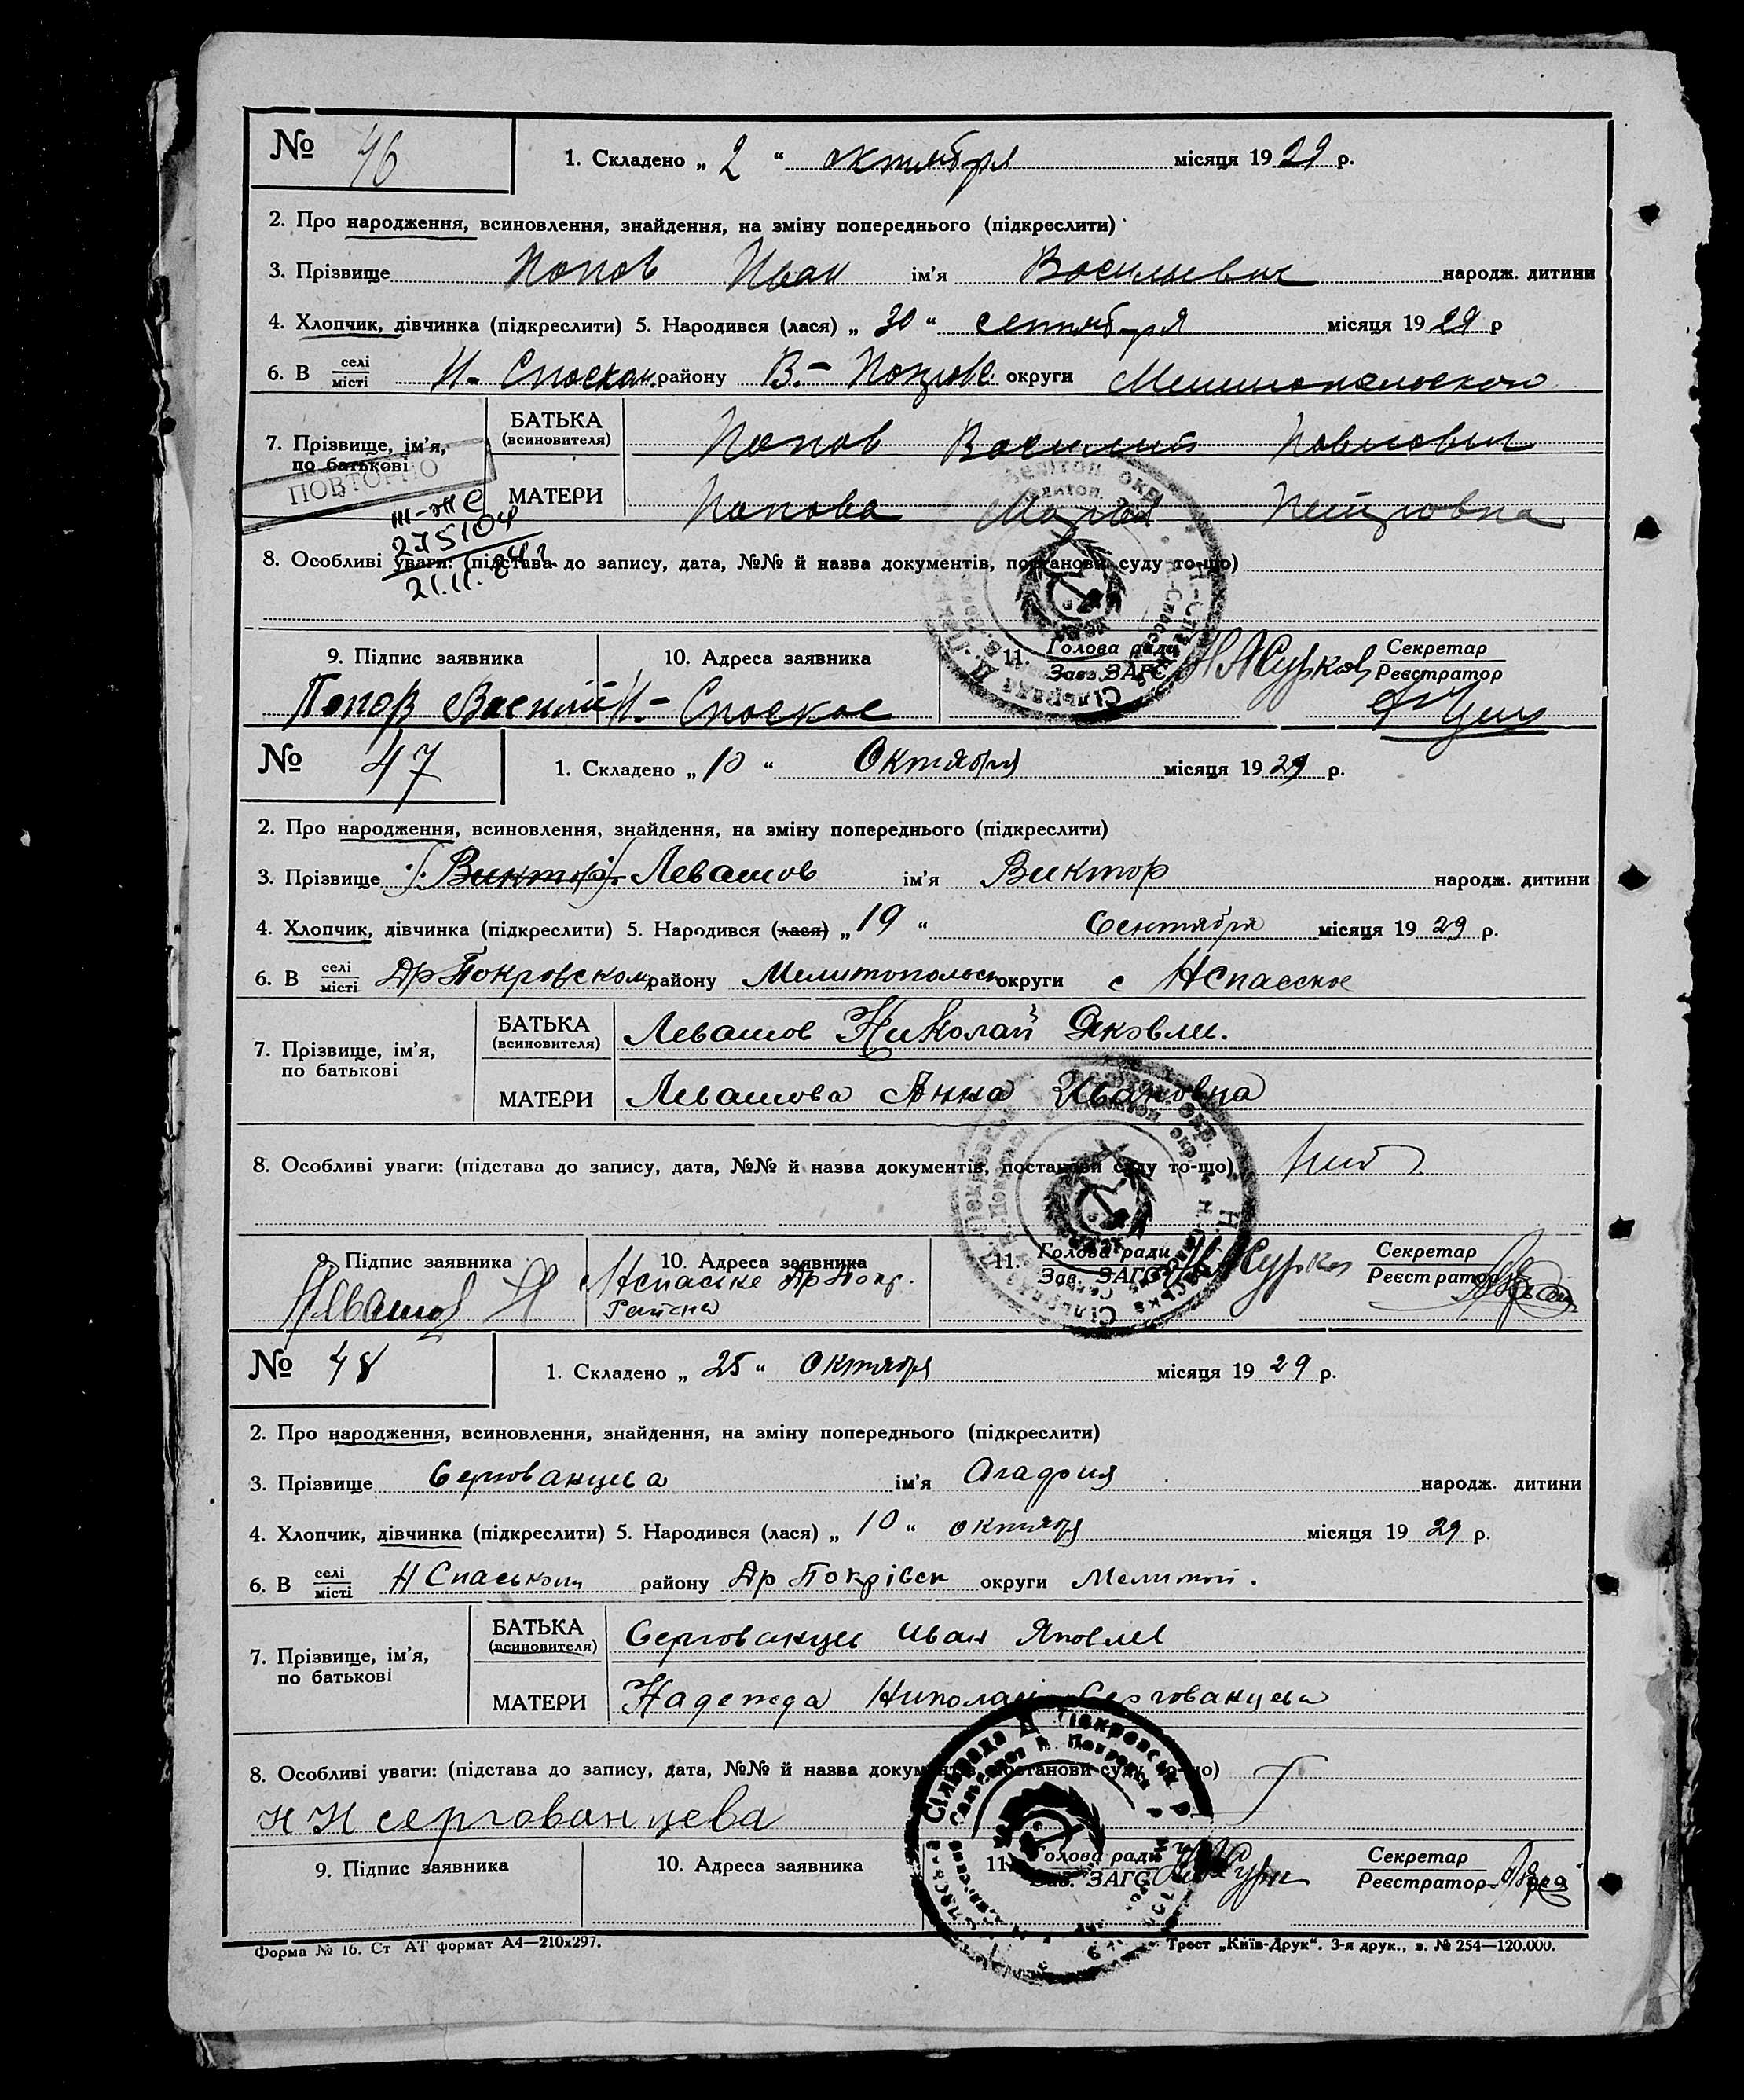 № 46
1. Складено „ 2 “ октября місяця 1929 р.
2. Про народження, всиновлення, знайдення, на зміну попереднього (підкреслити)
3. Прізвище Попов Иван ім'я Васильевич народж. дитини
4. Хлопчик, дівчинка (підкреслити) 5. Народився (лася) „ 30 “ сентября місяця 1929 р
6. В селі місті Н- Спаском району В.- Покров. округи Мелитопольской
7. Прізвище, ім'я, по батькові
БАТЬКА (всиновителя) Попов Василий Павлович
МАТЕРИ Попова Мария Петровна
ПОВТОРНО
III-ЖС
275104
21.11.84г.
8. Особливі уваги: (підстава до запису, дата, №№ й назва документів, постанови суду то-що)
9. Підпис заявника 10. Адреса заявника 11. Голова ради Зав. ЗАГС Н Журков Секретар Реєстратор
Попов Василий Н.- Споское
№ 47
1. Складено „ 10 “ Октября місяця 1929 р.
2. Про народження, всиновлення, знайдення, на зміну попереднього (підкреслити)
3. Прізвище (Виктор) Левашов ім'я Виктор народж. дитини
4. Хлопчик, дівчинка (підкреслити) 5. Народився (лася) „ 19 “ Сентября місяця 1929 р.
6. В селі місті Др Покровском району Мелитопольск округи с Нспасское
7. Прізвище, ім'я, по батькові
БАТЬКА (всиновителя) Левашов Николай Яковли.
МАТЕРИ Левашова Анна Ивановна
8. Особливі уваги: (підстава до запису, дата, №№ й назва документів, постанови суду то-що)
9. Підпис заявника 10. Адреса заявника 11. Голова ради Зав. ЗАГС Журков Секретар Реєстратор
Левашов Н Нспаське Др Покр. Района
№ 48
1. Складено „ 25 “ Октября місяця 1929 р.
2. Про народження, всиновлення, знайдення, на зміну попереднього (підкреслити)
3. Прізвище Сергованцева ім'я Агафия народж. дитини
4. Хлопчик, дівчинка (підкреслити) 5. Народився (лася) „ 10 “ октября місяця 1929 р.
6. В селі місті Н Спаському району Др Покрівск округи Мелитоп.
7. Прізвище, ім'я, по батькові
БАТЬКА (всиновителя) Сергованцев Иван Яковлев
МАТЕРИ Надежда Николай Сергованцева
8. Особливі уваги: (підстава до запису, дата, №№ й назва документів, постанови суду то-що)
Н Н сергованцева
9. Підпис заявника 10. Адреса заявника 11. Голова ради Зав. ЗАГС Секретар Реєстратор
Форма № 16. Ст АТ формат А4—210х297. Трест „Київ-Друк“. 3-я друк., з. № 254—120.000.